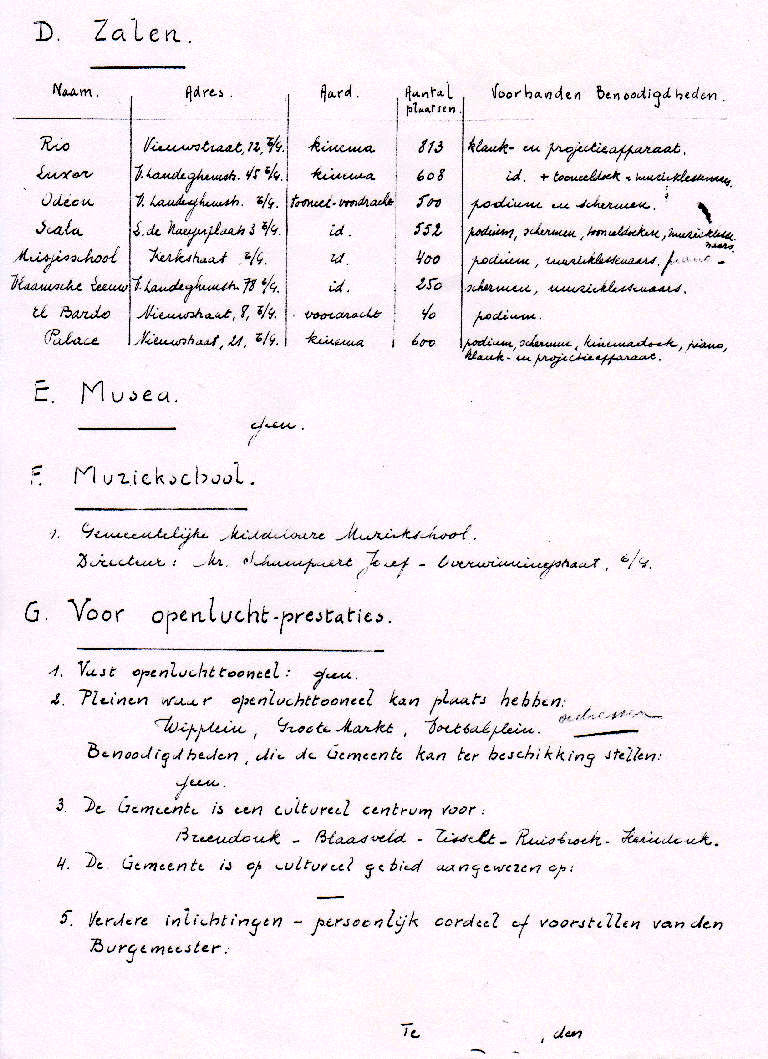 D. Zalen.
Naam. Adres. Aard. Aantal plaatsen. Voorhanden Benoodigdheden.
Rio Nieuwstraat, 12, E/G. kinema 813 klank- en projectieapparaat.
Luxor V. Landeghemstr. 45 E/G. kinema 608 id. + tooneldoek + muzieklessenaars.
Odeon V. Landeghemstr. E/G. tooneel-voordracht 500 podium en schermen.
Scala L. de Naeyerplaats 3 E/G. id. 552 podium, schermen, tooneldoeken, muzieklesse-
naars.
Meisjesschool Kerkstraat E/G. id. 400 podium, muzieklessenaars. piano -
Vlaamsche Leeuw V. Landeghemstr. 78 E/G. id. 250 schermen, muzieklessenaars.
El Bardo Nieuwstraat, 8, E/G. voordracht 40 podium.
Palace Nieuwstraat, 21, E/G. kinema 600 podium, schermen, kinemadoek, piano,
klank- en projectieapparaat.
E. Musea.
geen.
F. Muziekschool.
1. Gemeentelijke Middelbare Muziekschool.
Directeur: Mr. Jozef - Overwinningstraat, E/G.
G. Voor openlucht-prestaties.
1. Vast openluchttooneel: geen.
2. Pleinen waar openluchttooneel kan plaats hebben:
Wipplein, Groote Markt, Voetbalplein.
Benoodigdheden, die de Gemeente kan ter beschikking stellen:
geen.
3. De Gemeente is een cultureel centrum voor:
Breendonk - Blaasveld - Tisselt - Ruisbroek - Heindonk.
4. De Gemeente is op cultureel gebied aangewezen op:
—
5. Verdere inlichtingen - persoonlijk oordeel of voorstellen van den
Burgemeester:
Te , den